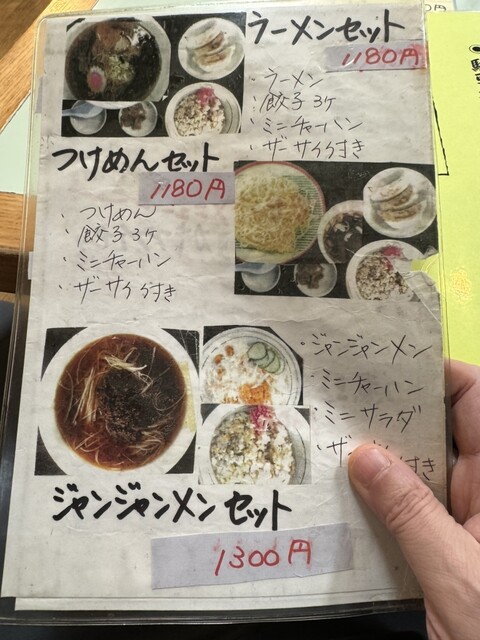 ラーメンセット
1180円
・ラーメン
・餃子3ヶ
・ミニチャーハン
・ザーサイ付き
つけめんセット
1180円
・つけめん
・餃子3ヶ
・ミニチャーハン
・ザーサイ付き
・ジャンジャンメン
・ミニチャーハン
・ミニサラダ
・ザー
付き
ジャンジャンメンセット
1300円
0円